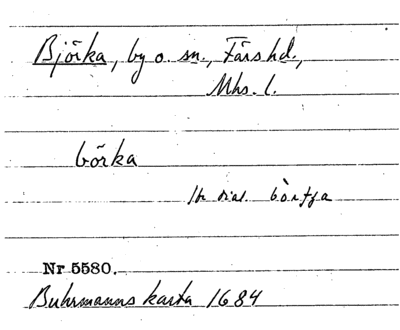 Björka, by o. sn., Färs hd.,
Mhs. l.
börka
dial.
Nr 5580.
Buhrmanns karta 1684